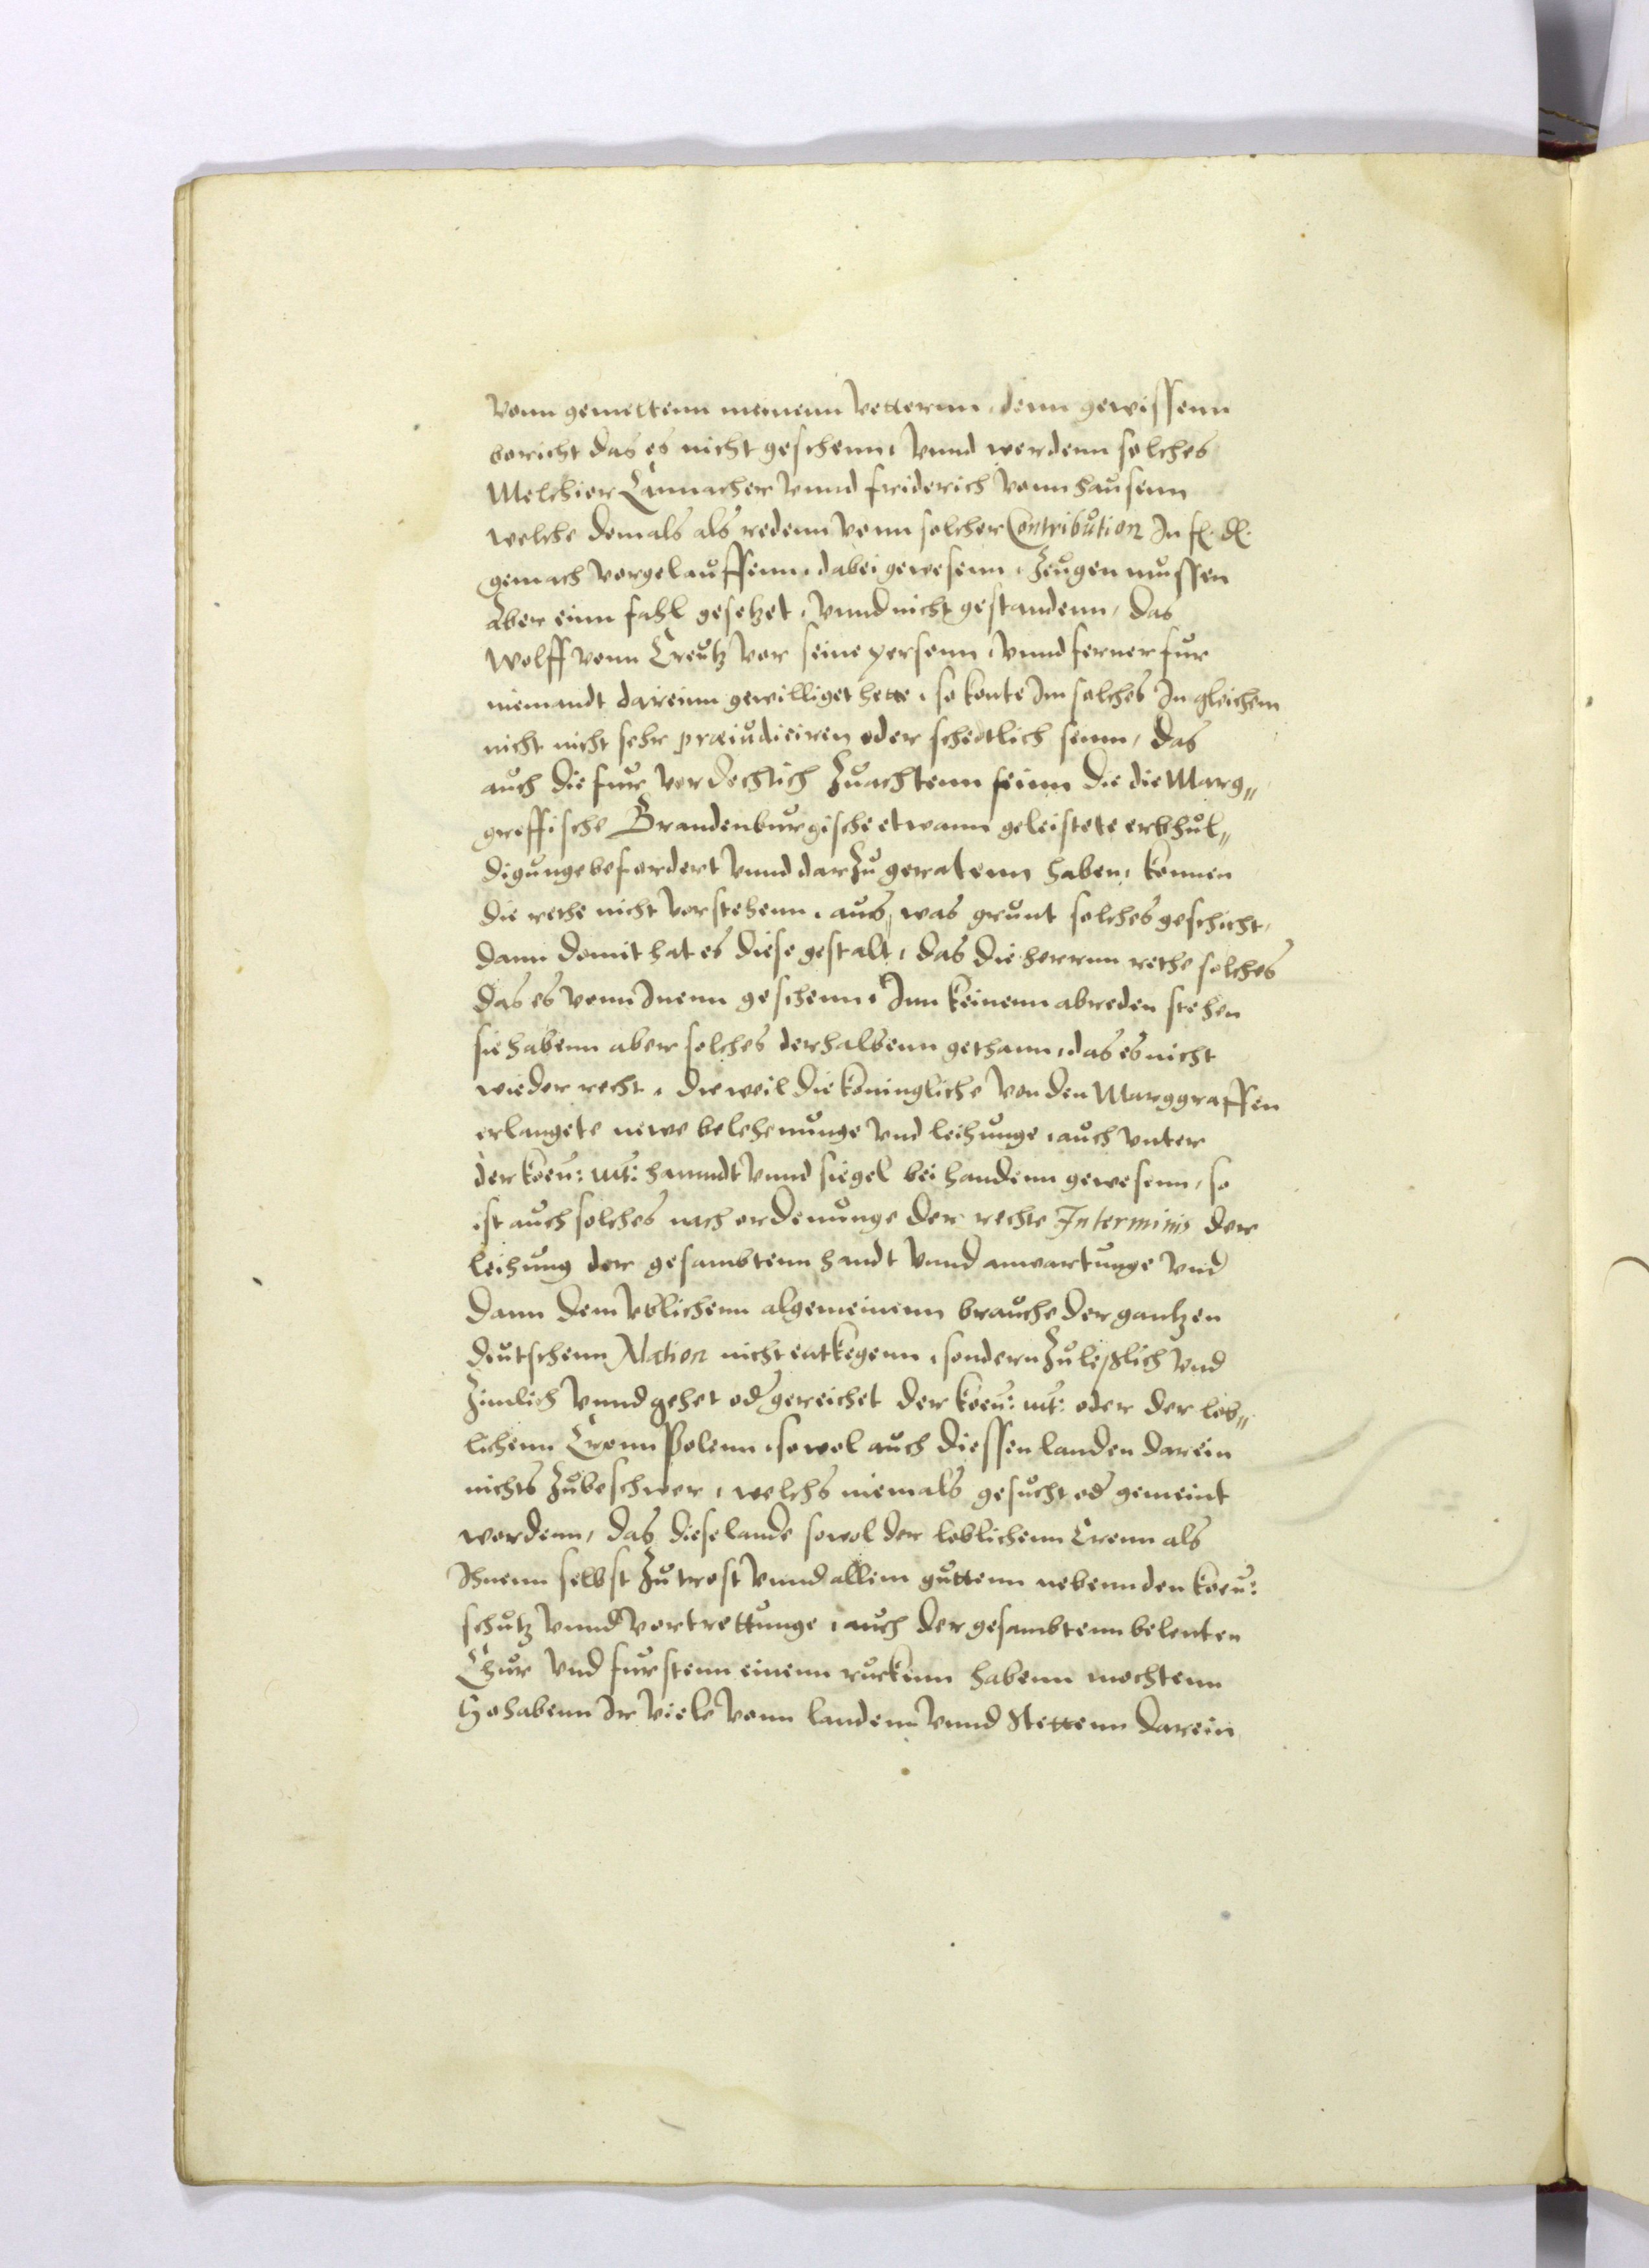 Vonn gemeltenn meinenn Vetternn, denn gewissenn
bericht das es nicht geschenn, Vnnd werdenn solches
Melchior Lannacher Vnnd friderich Vonn hausenn
welche domals als redenn Vonn solcher Contribution In f. d.
gemach Vorgelauffenn, dabei gewesenn, Zeugen mussen
Aber einn fahl gesetzet, Vnnd nicht gestandenn, das
Wolff Vonn Creutz Vor seine personn, Vnnd ferner fur
niemandt dareinn gewilliget hette, so konte Im solches In gleichem
nicht nicht sehr præiudiciren oder schedtlich seinn, das
auch die fur Vordechtich Zuachtenn seinn die die Marg„
greffische Brandenburgische etwann geleistete erbhul„
digunge befordert Vnnd darZu geratenn haben, konnen
die rethe nicht Vorstehenn, aus was grunt solches geschicht,
dann domit hat es diese gestalt, das die herrnn rethe solches
das es Vonn Inenn geschenn, Inn keinenn abreden stehen
sie habenn aber solches derhalbenn gethann, das es nicht
wieder recht, dieweil die koningliche Von den Marggraffen
erlangete newe belehenunge Vnd leihunge, auch Vnter
der koen: mt: hanndt Vnnd siegel bei handenn gewesenn, so
ist auch solches nach ordenunge der rechte In terminis der
leihung der gesambtenn handt Vnnd anwartunge Vnd
dann dem Vblichenn algemeinenn brauche der gantzen
deutschenn Nation nicht entkegenn, sondern Zuleßlich Vnd
Zimlich Vnnd gehet od gereichet der koen: mt: oder der lob„
lichenn Cronn Polenn, sowol auch diessen landen darein
nichts Zubeschwer, welchs niemals gesucht od gemeint
wordenn, das diese lande sowol der loblichenn Cronn als
Ihnenn selbst Zu trost Vnnd allem guttenn nebenn den koen:
schutz Vnnd Vortrettunge, auch der gesambtenn belenten
Chur Vnd furstenn einenn ruckenn habenn mochtenn
So habenn Ir Viele Vonn landenn Vnnd Stettenn darein